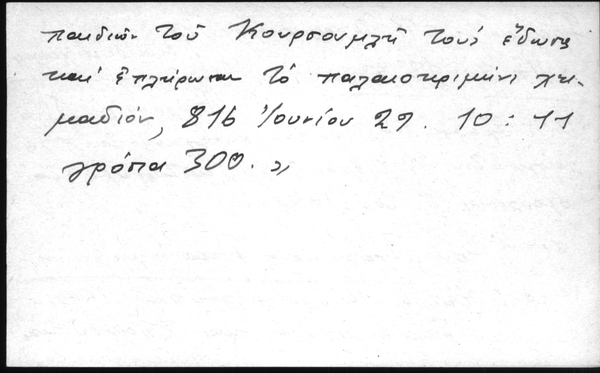 παιδιῶν τοῦ Κουρσουμλῆ τούς ἔδωσα
καί ἐπλήρωσαν τό παλαιοκριμένι
μαδιόν, 816 Ἰουνίου 29. 10 : 11
γρόσια 300. »